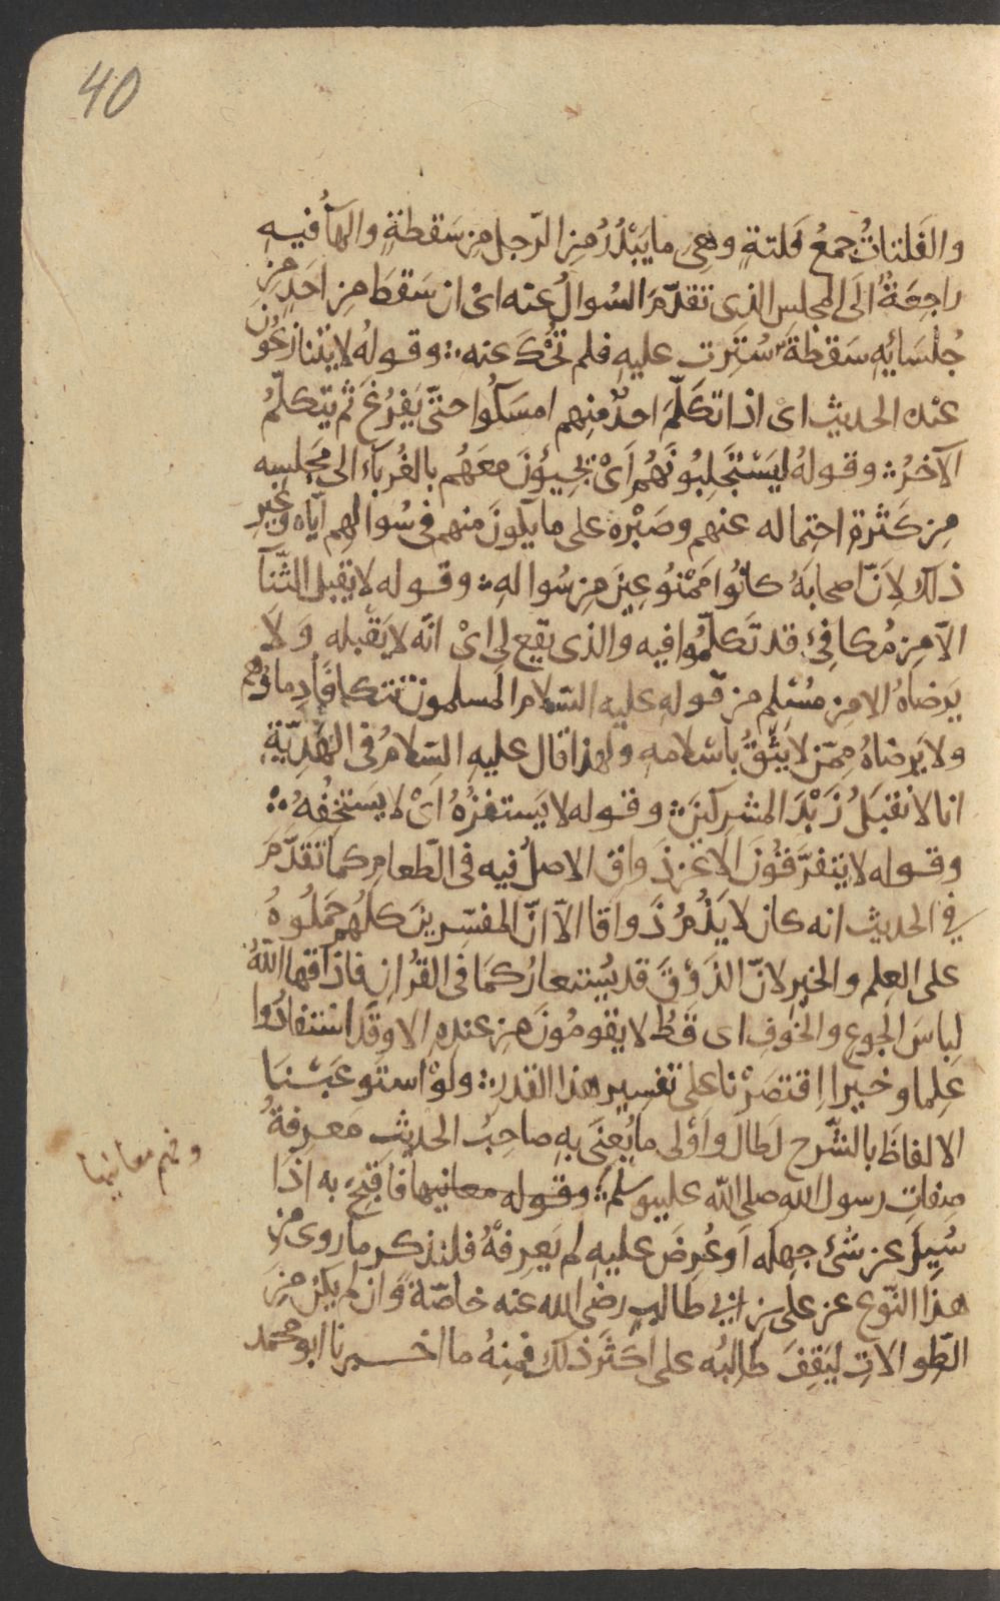 40
والفَلتاتُ جمعُ فَلتةٍ وهِى ما يَبْدُرُ مِن الرّجل مِن سَقطةٍ والهآ فيهِ
راجِعَةٌ الَى المجلسِ الذى تقدّمَ السُوالُ عنه اىْ ان سَقطَ مِن احَدٍ مِن
جُلسَائِهِ سَقطةٌ سُتِرت عليهِ فلم تُحْكَ عنه ؞ وقولهُ لا يتنازعُونَ
عنده الحديث اى اذا تكَلّمَ احدٌ منهم امسَكُوا حتّى يَفرُغَ ثم يتكلّمُ
الآخرُ ؞ وقولهُ ليَسْتَجلِبُونَهُم اىْ يجيؤنَ معَهُم بالغُربآء الى مجَلِسِه
مِن كَثرة احتِماله عنهم وصَبْره على ما يكونَ منهم فى سُوالهِم ايّاه وغَير
ذلك لاَنّ اصحابَهُ كانُوا مَمْنُوعِينَ مِن سُوالهِ ؞ وقوله لا يقبل الثّنآ
الاّ مِن مُكافِئ قد تَكلّمُوا فيه والذى يقع لى اىْ انّه لا يَقبله وَلا
يَرضاهُ الا مِن مُسْلم من قوله عليه السّلام المسلمون تتكافَأ دِماؤهم
ولا يَرضاهُ مِمّن لا يَثِقُ باسْلامه ولهذا قال عليهِ السّلامُ فى الهَدِيّةِ
انا لا نقبَلُ زَبْدَ المشركِينَ ؞ وقوله لا يَستفزُهُ اىْ لا يَستخِفُهُ ؞
وقوله لا يتفرَّقُونَ الا عَن ذَواقٍ الاصلُ فيه فى الطّعامِ كما تَقدّمَ
في الحديث انه كان لا يَذُمُ ذَواقا الاّ انّ المفسّرينَ كلّهُم حَمَلُوهُ
على العِلم والخيرِ لانّ الذَوْقَ قد يُستعارُ كمَا فى القرُان فاذاقها اللهُ
لِباسَ الجوعِ والخَوفِ اى قطُ لا يقومُونَ مِن عندِهِ الا وقَد استفادُوا
عِلما وخيرا اِقتصَرْنا على تفسير هذا القدر ؞ ولوْ استَوعَبْنَا
الالفاظَ بالشّرح لَطالَ واَوْلى ما يُعنَى بهِ صاحِبُ الحديثِ مَعرِفةُ
صِفاتِ رسول الله صلى الله عليه وسلم ؞ وقوله معانيها فاقبِحْ به اذَا
وفهم معانيها
سُئِلَ عن شئ جهِلَه اَو عُرِضَ عليهِ لم يَعرِفهُ فلنذكر ما روى مِن
هذَا النّوع عن على بن ابى طالب رضى الله عنه خاصّةً وَان لم يكن مِن
الطِوالاتِ ليَقِفَ طالِبُه على اكثَرَ ذلك فمِنهُ ما اخبرنا ابو محمد